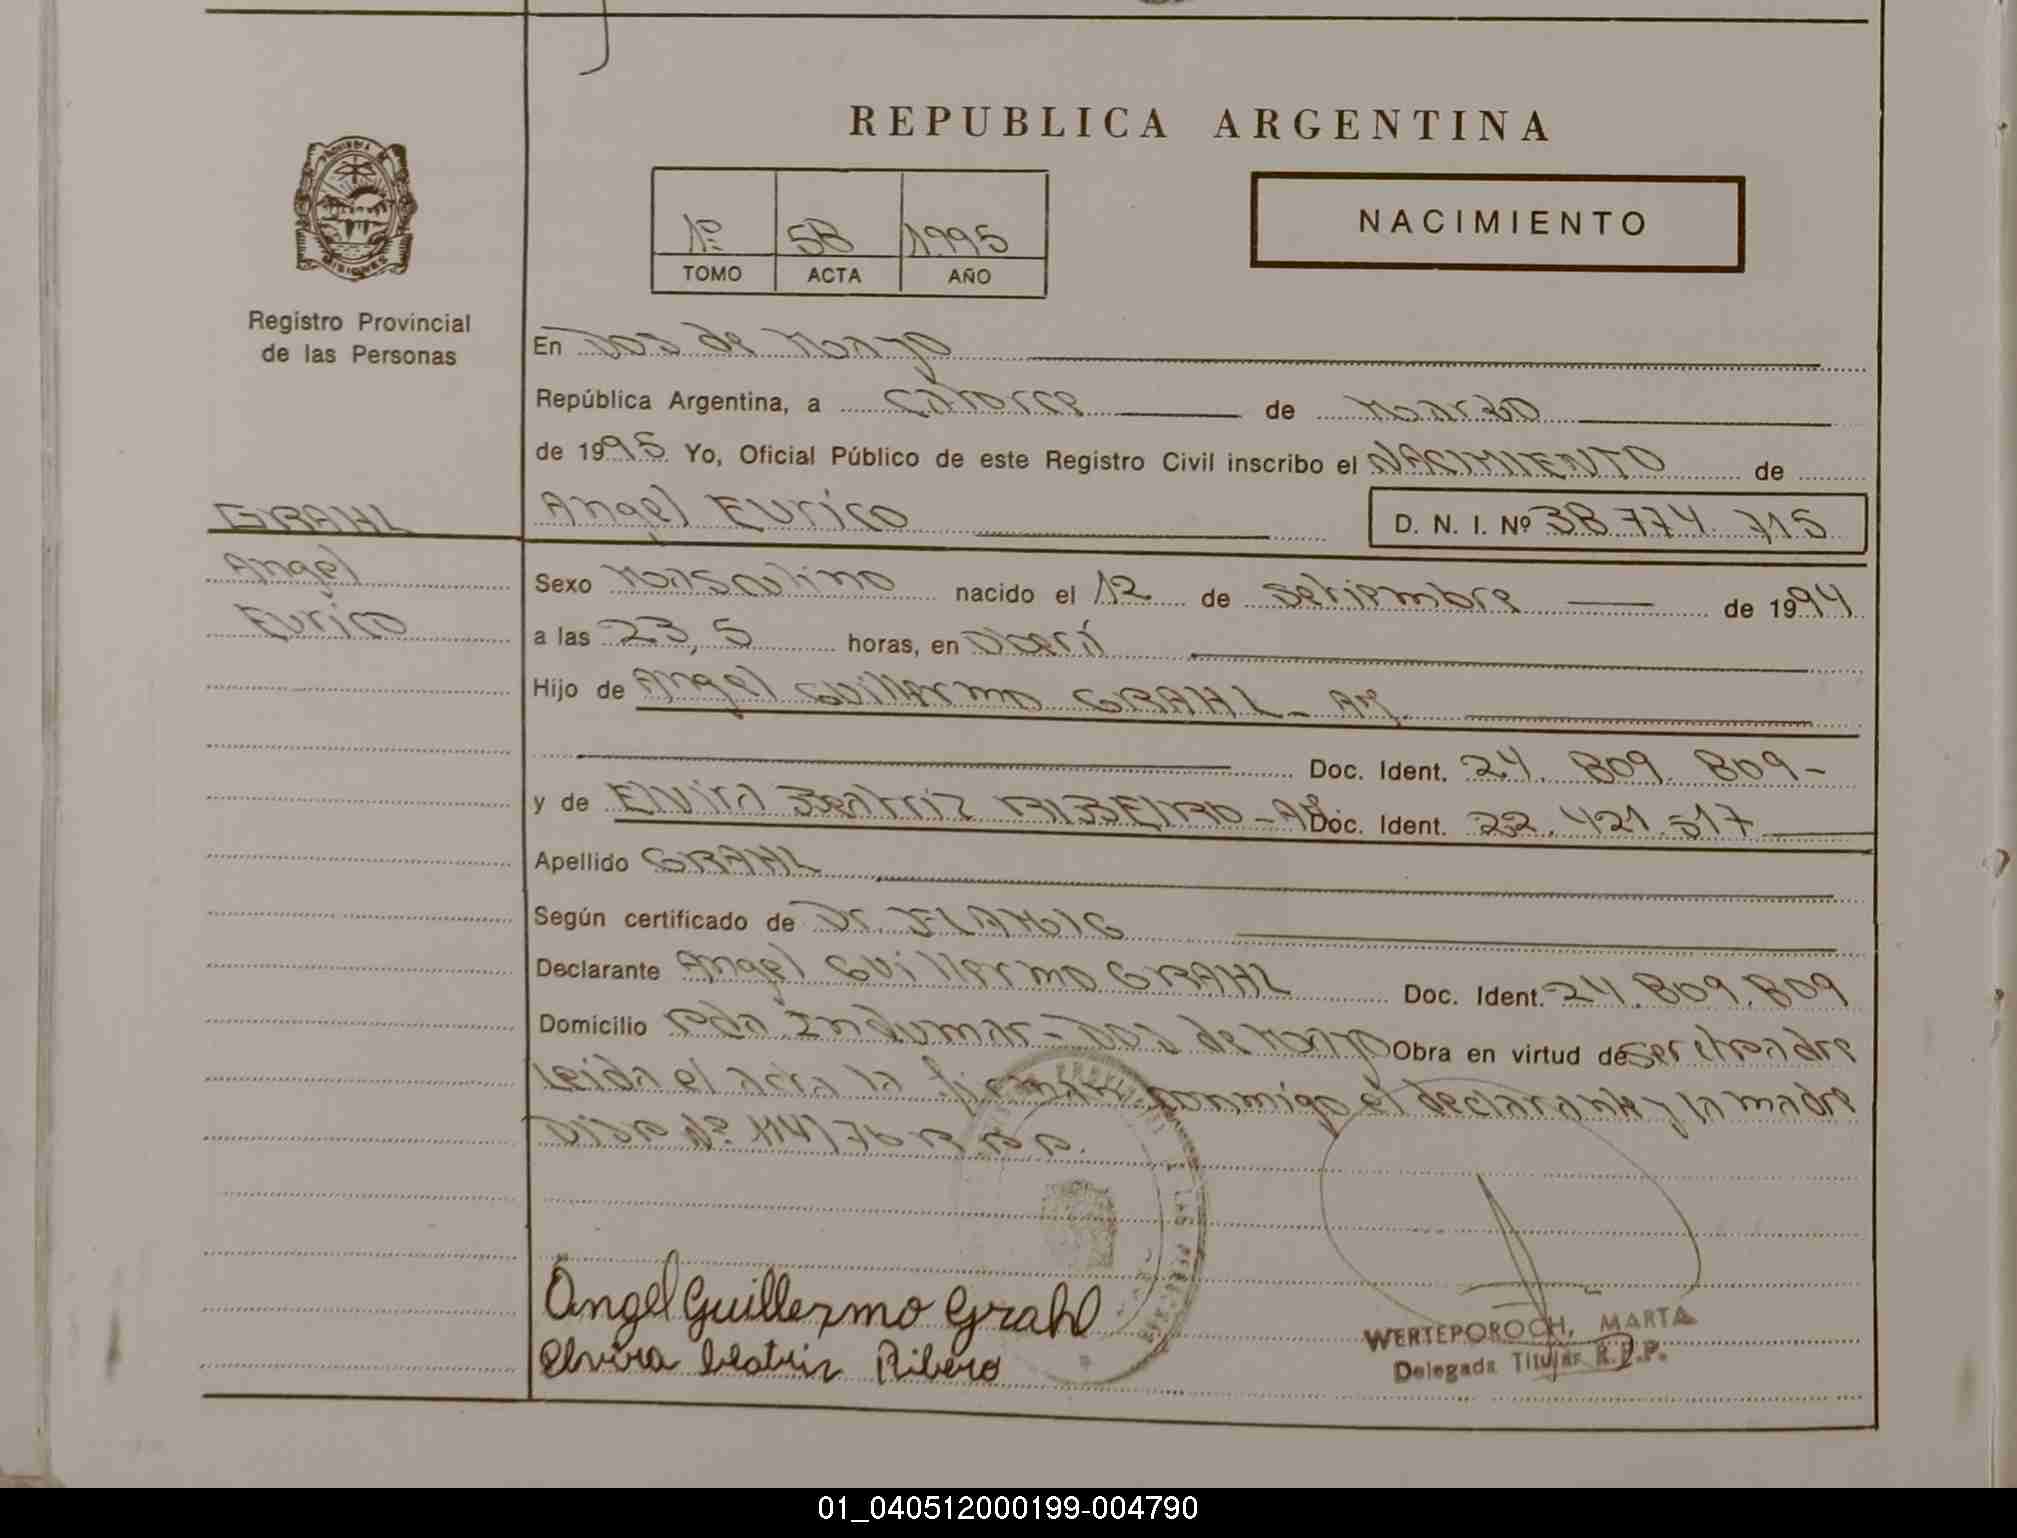 REPUBLICA ARGENTINA
1º 58 1995
TOMO ACTA AÑO
NACIMIENTO
PROVINCIA DE
MISIONES
Registro Provincial
de las Personas
En Dos de Mayo
República Argentina, a Catorce de Marzo
de 1995 Yo, Oficial Público de este Registro Civil inscribo el NACIMIENTO de
GRAHL
Angel Eurico D. N. I. Nº 38.774.715
Angel
Eurico
Sexo Masculino nacido el 12 de setiembre de 1994
a las 23,5 horas, en Oberá
Hijo de Angel Guillermo GRAHL - Ar.
Doc. Ident. 24.809.809-
y de Elvira Beatriz RIBEIRO - Ar. Doc. Ident. 22.421.517
Apellido GRAHL
Según certificado de Dr.
Declarante Angel Guillermo GRAHL Doc. Ident. 24.809.809
Domicilio Pda Indumar - Dos de Mayo Obra en virtud de ser el padre
Leida el acta la firman conmigo el declarante y la madre
Disp Nº 114/76 R.P.P.
Angel Guillermo Grahl
Elvira beatriz Ribero
WERTEPOROCH, MARTA
Delegada Titular R.P.P.
01_040512000199-004790